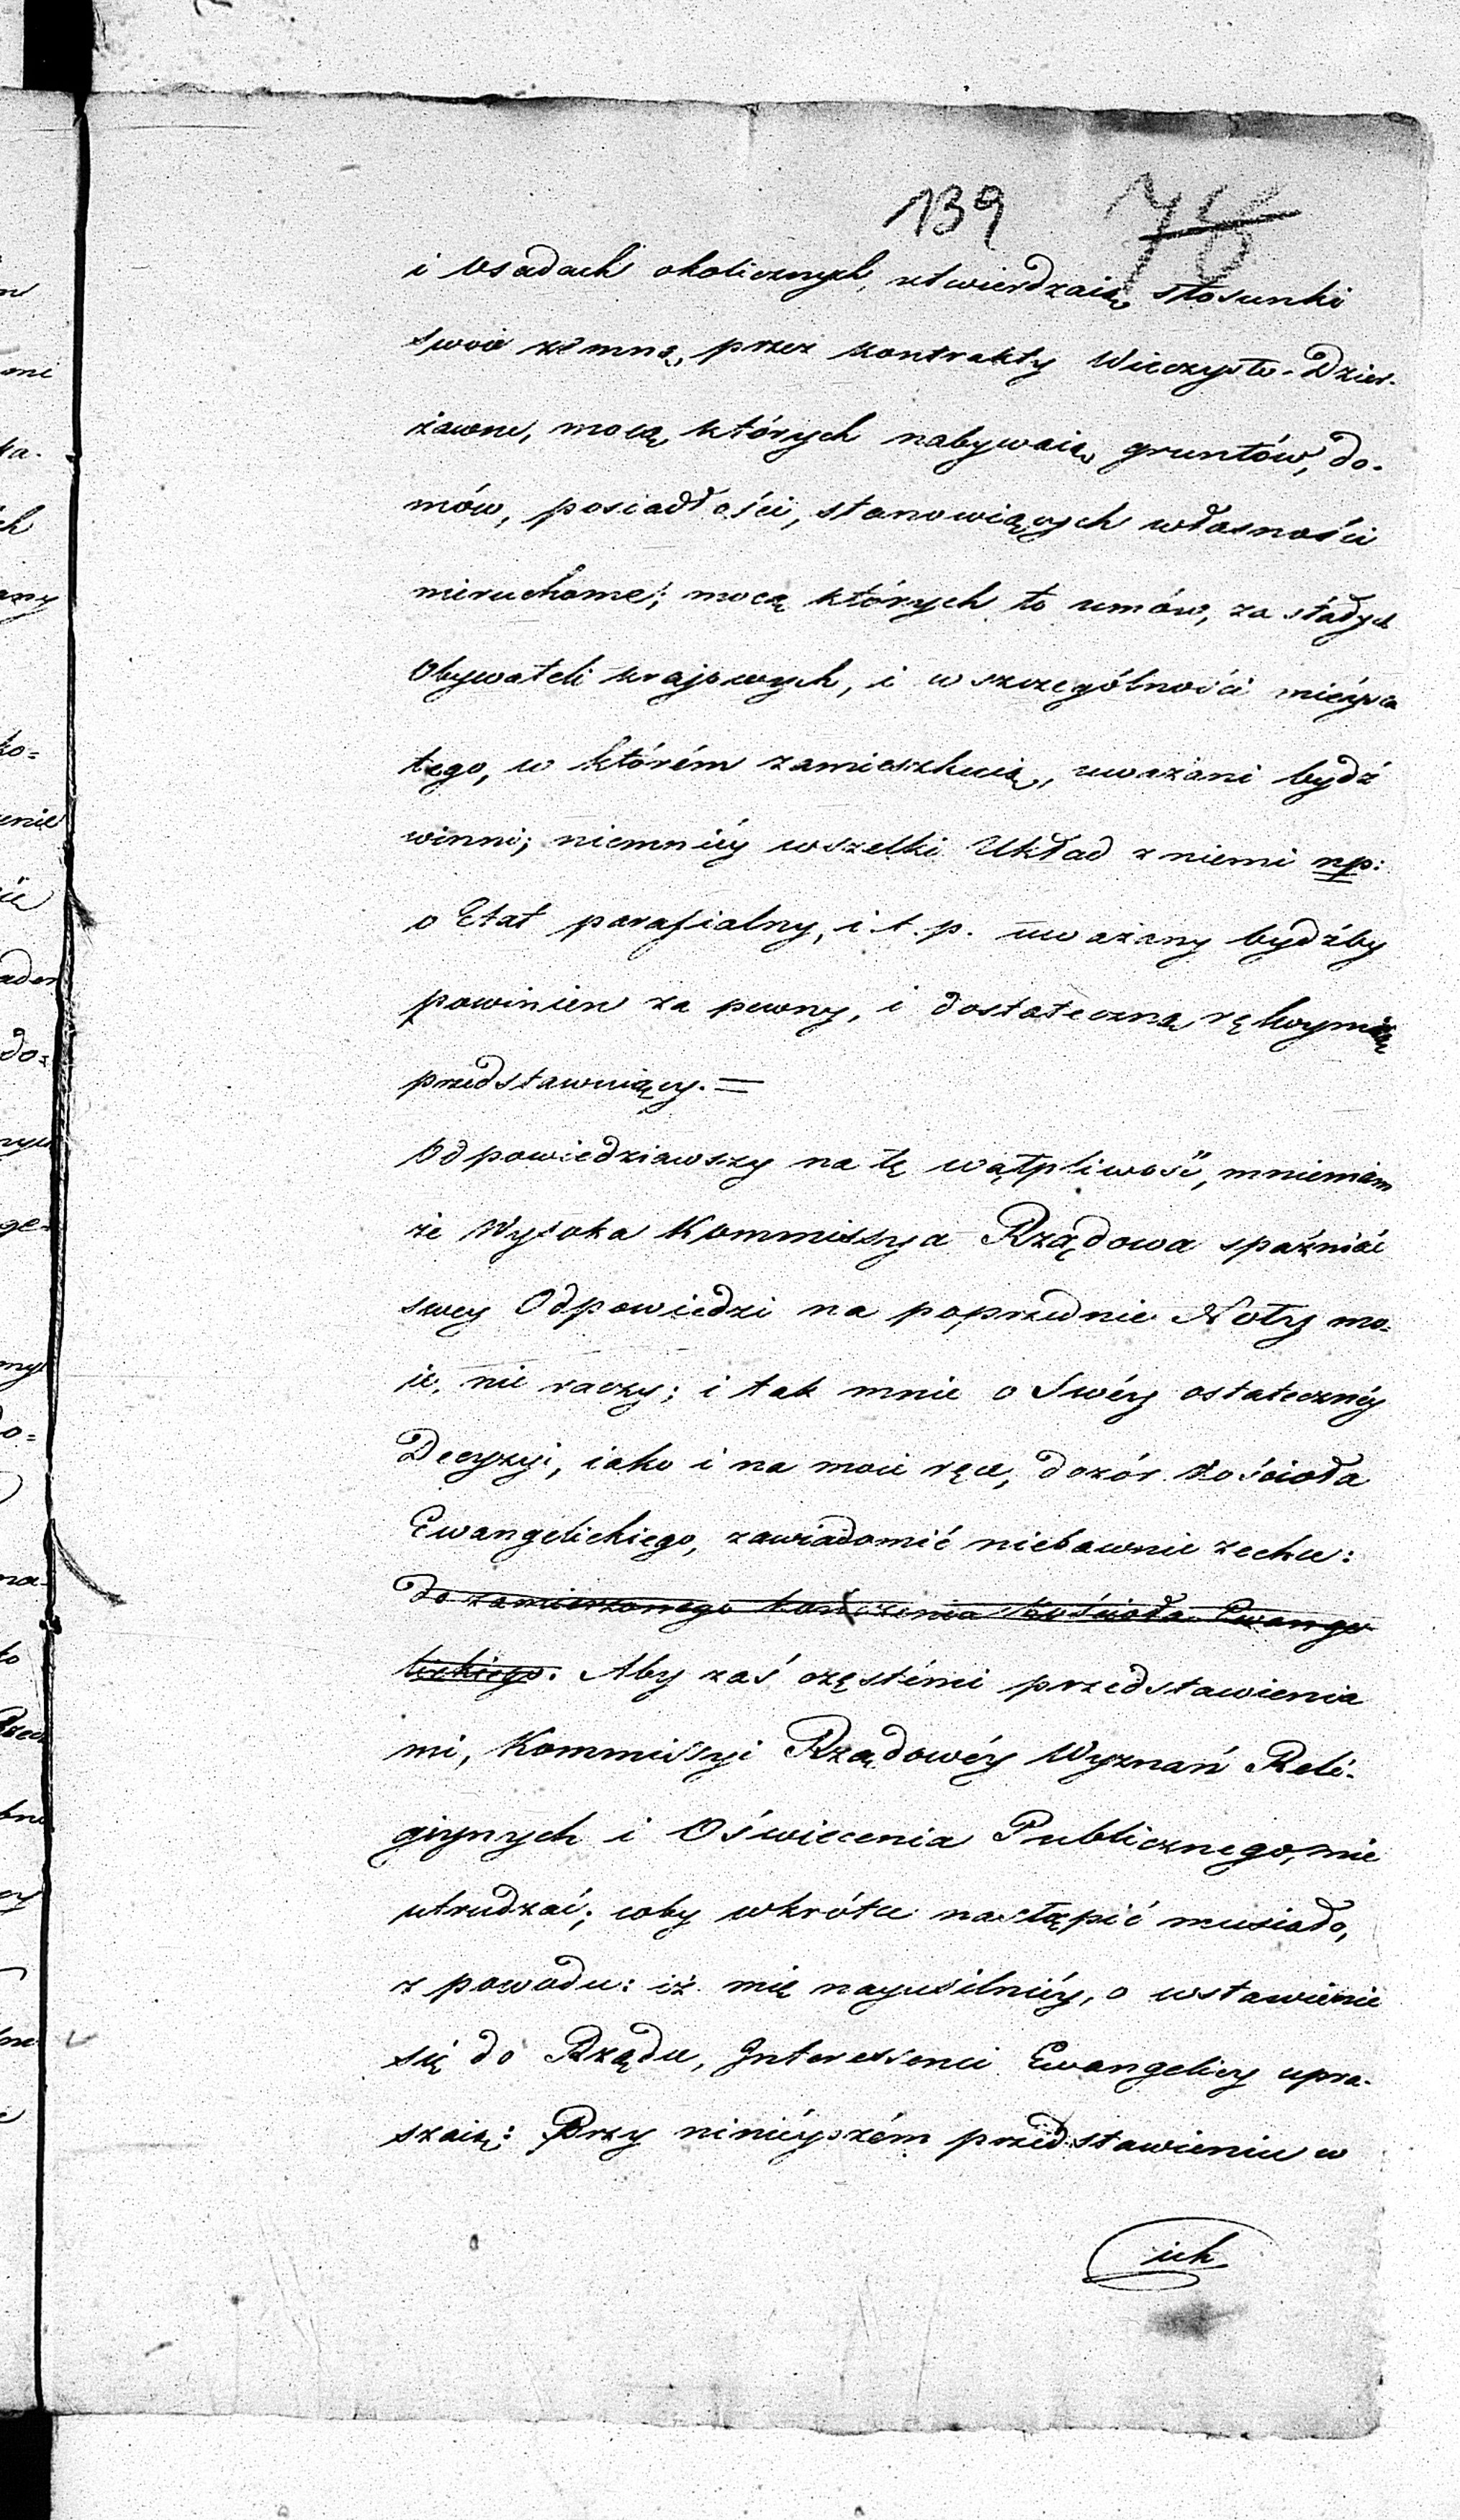 139 76
i Osadach okolicznych, utwierdzaią stosunki
swoie zemną, przez kontrakty Wieczysto-Dzier-
żawne, mocą których nabywaią gruntów, do-
mów, posiadłości, stanowiących własności
nieruchome; mocą których to umów, za stałych
Obywateli krajowych, i w szczególności mieysca
tego, w którém zamieszkuią, uważani bydź
winni; niemniéy wszelki Układ z niemi np:
o Etat parafialny, i. t. p. uważany bydźby
powinien za pewny, i dostateczną rękoymią
przedstawuiący. =
Odpowiedziawszy na tę wątpliwość, mniemam
że Wysoka Kommissya Rządowa spaźniać
swey Odpowiedzi na poprzednie Noty mo-
ie, nie raczy; i tak mnie o Swéy ostatecznéy
Decyzyi, iako i na moie ręce, dozór Kościoła
Ewangelickiego, zawiadomić niebawnie zechce:
do zamierzonego kończenia Kościoła Ewange
lickiego. Aby zaś częstémi przedstawienia
mi, Kommissyi Rządowéy Wyznań Reli-
giynych i Oświecenia Publicznego, nie
utrudzać; coby wkrótce nastąpić musiało,
z powodu: iż mię nayusilniéy, o wstawienie
się do Rządu, Interessenci Ewangelicy upra-
szaią: Przy ninieyszém przedstawieniu w
ich